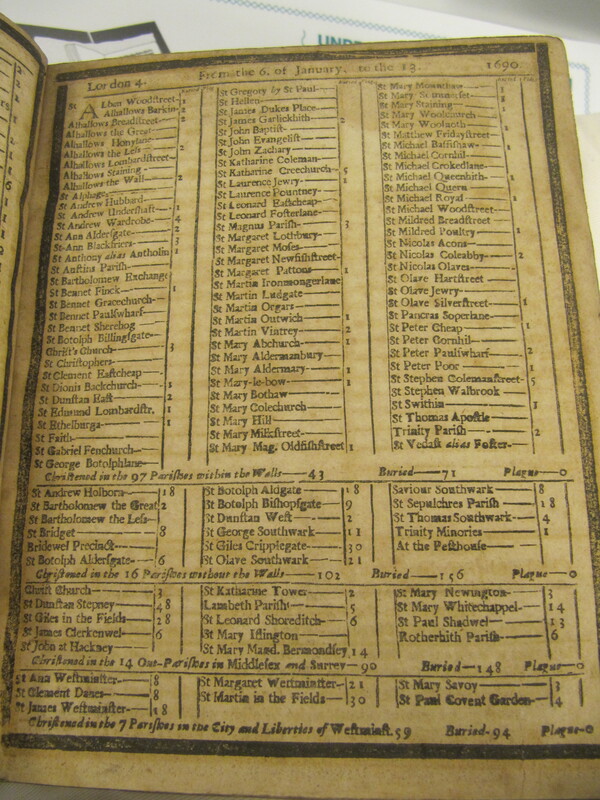 UNDE
London 4. From the 6. of January, to the 13. 1690.
St Alban Woodstreet 1
Alhallows Barkin
Alhallows Breadstreet
Alhallows the Great
Alhallows Honylane
Alhallows the Less 2
Alhallows Lombardstreet
Alhallows Staining
Alhallows the Wall 2
St Alphage
St Andrew Hubbard
St Andrew Undershaft 1
St Andrew Wardrobe 4
St Ann Aldersgate 2
St Ann Blackfriers 3
St Anthony alias Antholin 1
St Austins Parish
St Bartholomew Exchange
St Bennet Finck 1
St Bennet Gracechurch
St Bennet Paulswharf
St Bennet Sherehog
St Botolph Billingsgate
Christ's Church 3
St Christophers
St Clement Eastcheap
St Dionis Backchurch 1
St Dunstan East 2
St Edmund Lombardstr. 1
St Ethelburga 1
St Faith
St Gabriel Fenchurch
St George Botolphlane
St Gregory by St Paul
St Hellen
St James Dukes Place
St James Garlickhith 2
St John Baptist
St John Evangelist
St John Zachary
St Katharine Coleman
St Katharine Creechurch 5
St Laurence Jewry 1
St Laurence Pountney
St Leonard Eastcheap
St Leonard Fosterlane
St Magnus Parish 3
St Margaret Lothbury
St Margaret Moses
St Margaret Newfishstreet
St Margaret Pattons 1
St Martin Ironmongerlane
St Martin Ludgate
St Martin Orgars
St Martin Outwich 1
St Martin Vintrey 2
St Mary Abchurch 1
St Mary Aldermanbury
St Mary Aldermary 1
St Mary-le-bow 1
St Mary Bothaw
St Mary Colechurch
St Mary Hill
St Mary Milkstreet
St Mary Mag. Oldfishstreet 1
St Mary Mounthaw
St Mary Somerset 2
St Mary Staining
St Mary Woolchurch
St Mary Woolnoth 1
St Matthew Fridaystreet
St Michael Bassishaw 1
St Michael Cornhil
St Michael Crokedlane
St Michael Queenhith 1
St Michael Quern
St Michael Royal 1
St Michael Woodstreet
St Mildred Breadstreet
St Mildred Poultry
St Nicolas Acons
St Nicolas Coleabby 2
St Nicolas Olaves
St Olave Hartstreet
St Olave Jewry
St Olave Silverstreet 1
St Pancras Soperlane
St Peter Cheap 1
St Peter Cornhil
St Peter Paulswharf 2
St Peter Poor 1
St Stephen Colemanstreet 5
St Stephen Walbrook
St Swithin 3
St Thomas Apostle
Trinity Parish 2
St Vedast alias Foster
Christned in the 97 Parishes within the Walls 43 Buried 71 Plague 0
St Andrew Holborn 18
St Bartholomew the Great 2
St Bartholomew the Less
St Bridget 8
Bridewel Precinct
St Botolph Aldersgate 6
St Botolph Aldgate 18
St Botolph Bishopsgate 9
St Dunstan West 2
St George Southwark 11
St Giles Cripplegate 30
St Olave Southwark 21
Saviour Southwark 8
St Sepulchres Parish 18
St Thomas Southwark 4
Trinity Minories 1
At the Pesthouse
Christned in the 16 Parishes without the Walls 102 Buried 156 Plague 0
Christ Church 3
St Dunstan Stepney 48
St Giles in the Fields 28
St James Clerkenwel 6
St John at Hackney
St Katharine Tower 2
Lambeth Parish 5
St Leonard Shoreditch 6
St Mary Islington
St Mary Magd. Bermondsey 14
St Mary Newington 3
St Mary Whitechappel 14
St Paul Shadwel 13
Rotherhith Parish 6
Christned in the 14 Out-Parishes in Middlesex and Surrey 90 Buried 148 Plague 0
St Ann Westminster 8
St Clement Danes 8
St James Westminster 18
St Margaret Westminster 21
St Martin in the Fields 30
St Mary Savoy 3
St Paul Covent Garden 4
Christned in the 7 Parishes in the City and Liberties of Westminst. 59 Buried 94 Plague 0